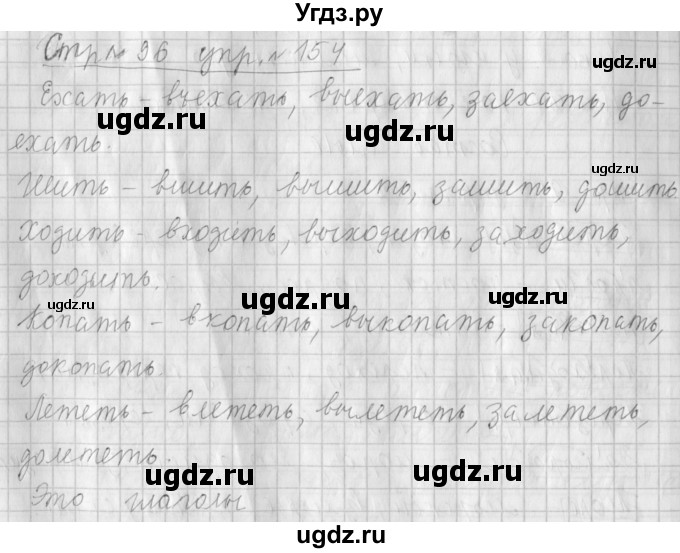 Угдз.ру
Стр № 96 упр. № 154
Ехать - въехать, выехать, заехать, до-
ugdz.ru ugdz.ru
ехать.
ugdz.ru
Шить - вшить, вышить, зашить, дошить
Ходить - входить, выходить, заходить,
доходить.
ugdz.ru ugdz.ru ugdz.ru
Копать - вкопать, выкопать, закопать,
докопать.
Лететь - влететь, вылететь, залететь,
долететь.
ugdz.ru ugdz.ru
Это глаголы
ugdz.ru ugdz.ru